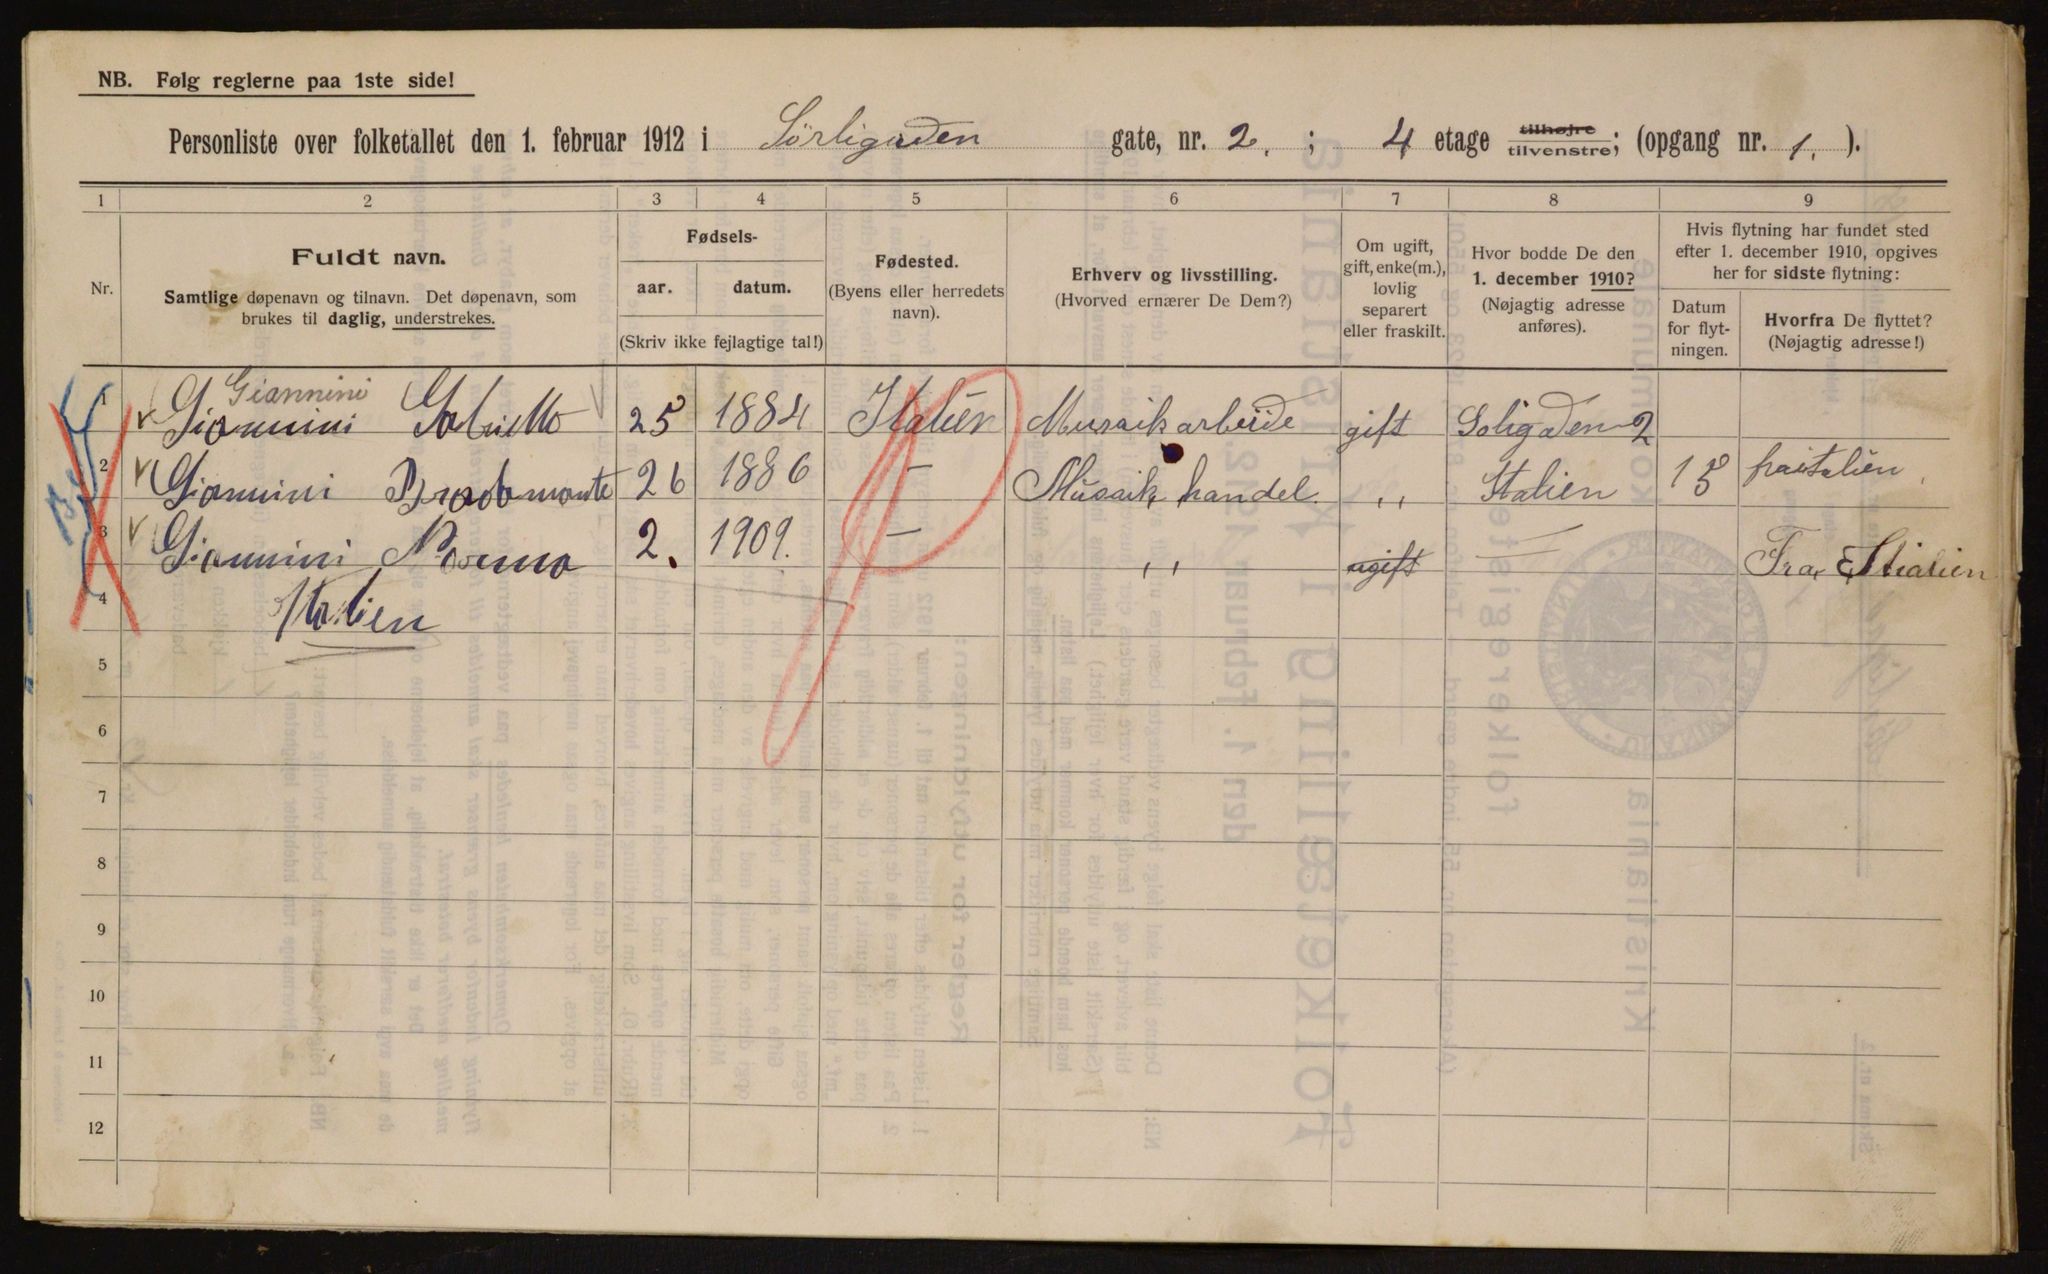 NB. Følg reglerne paa 1ste side!
Personliste over folketallet den 1. februar 1912 i Sörligaden gate, nr. 2. ; 4 etage tilhøjre tilvenstre; (opgang nr. 1. ).
1 2 3 4 5 6 7 8 9
Nr.
Fuldt navn.
Samtlige døpenavn og tilnavn. Det døpenavn, som
brukes til daglig, understrekes.
Fødsels-
aar. datum.
(Skriv ikke fejlagtige tal!)
Fødested.
(Byens eller herredets
navn).
Erhverv og livsstilling.
(Hvorved ernærer De Dem?)
Om ugift,
gift, enke(m.),
lovlig
separert
eller fraskilt.
Hvor bodde De den
1. december 1910?
(Nøjagtig adresse
anføres).
Hvis flytning har fundet sted
efter 1. december 1910, opgives
her for sidste flytning:
Datum
for flyt-
ningen.
Hvorfra De flyttet?
(Nøjagtig adresse!)
Giannini
1 Giannini 25 1884 Italien Musaik arbeide gift Soligaden 2
2 Giannini Bradamante 26 1886 — Musaik handel. ,, Italien 15 fraitalien
3 Giannini Norma 2. 1909. — ,, ugift — Fra Itialien
4 Italien
5
6
7
8
9
10
11
12